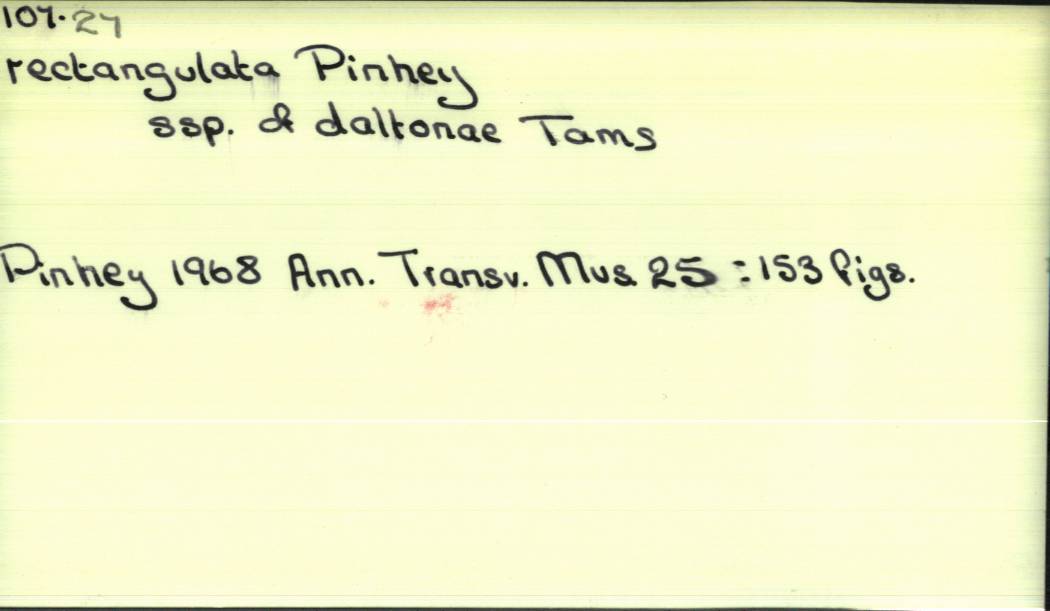 107.27
rectangulata Pinhey
ssp. of daltonae Tams
Pinhey 1968 Ann. Transv. Mus. 25 : 153 figs.